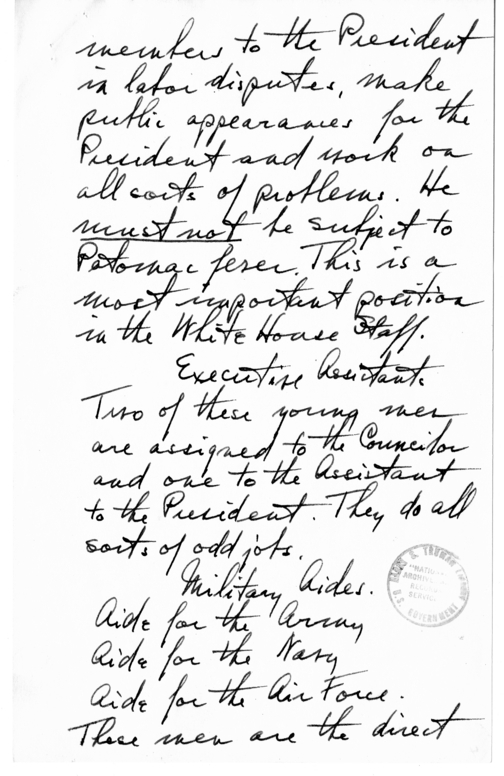 members to the President
in labor disputes, make
public appearances for the
President and work on
all sorts of problems. He
must not be subject to
Potomac fever. This is a
most important position
in the White House Staff.
Executive Assistants
Two of these young men
are assigned to the Councilor
and one to the Assistant
to the President. They do all
sorts of odd jobs.
Military Aides.
Aide for the Army
Aide for the Navy
Aide for the Air Force.
These men are the direct
HARRY S. TRUMAN LIBRARY
"NATIONAL
ARCHIVES
SERVICE
U.S. GOVERNMENT